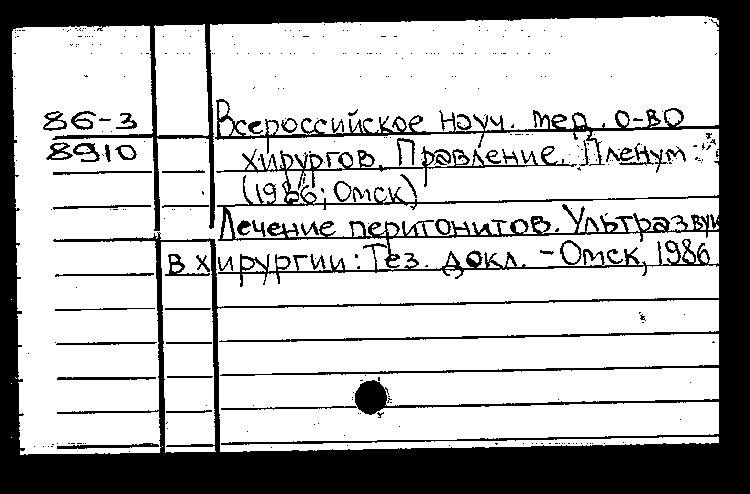 86-3 Всероссийское науч. мед. о-во
8910 хирургов. Правление. Пленум
(1986; Омск)
Лечение перитонитов. Ультразвук
в хирургии: Тез. докл. - Омск, 1986